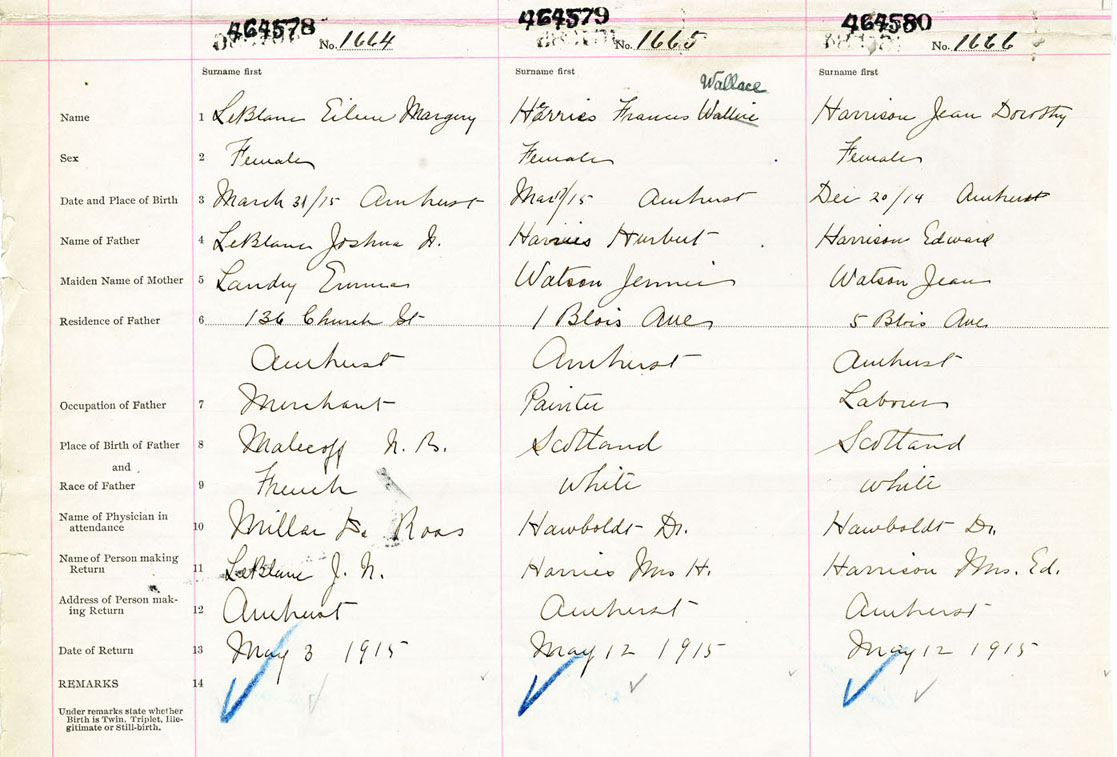 464578 464579 464580
No. 1664 No. 1665 No. 1666
Surname first Surname first Surname first
Wallace
Name 1 LeBlanc Eileen Margery Harries Frances Harrison Jean Dorothy
Sex 2 Female Female Female
Date and Place of Birth 3 March 31/15 Amherst Mar /15 Amherst Dec 20/14 Amherst
Name of Father 4 LeBlanc Joshua N. Harries Hurbert Harrison Edward
Maiden Name of Mother 5 Landry Emma Watson Jennie Watson Jean
Residence of Father 6 136 Church St 1 Blois Ave 5 Blois Ave
Amherst Amherst Amherst
Occupation of Father 7 Merchant Painter Labourer
Place of Birth of Father 8 Malecoff N. B. Scotland Scotland
and
Race of Father 9 French White White
Name of Physician in
attendance 10 Millar Ross Hawboldt Dr. Hawboldt Dr.
Name of Person making
Return 11 LeBlanc J. N. Harries Mrs H. Harrison Mrs. Ed.
Address of Person mak-
ing Return 12 Amherst Amherst Amherst
Date of Return 13 May 3 1915 May 12 1915 May 12 1915
REMARKS 14
Under remarks state whether
Birth is Twin, Triplet, Ille-
gitimate or Still-birth.